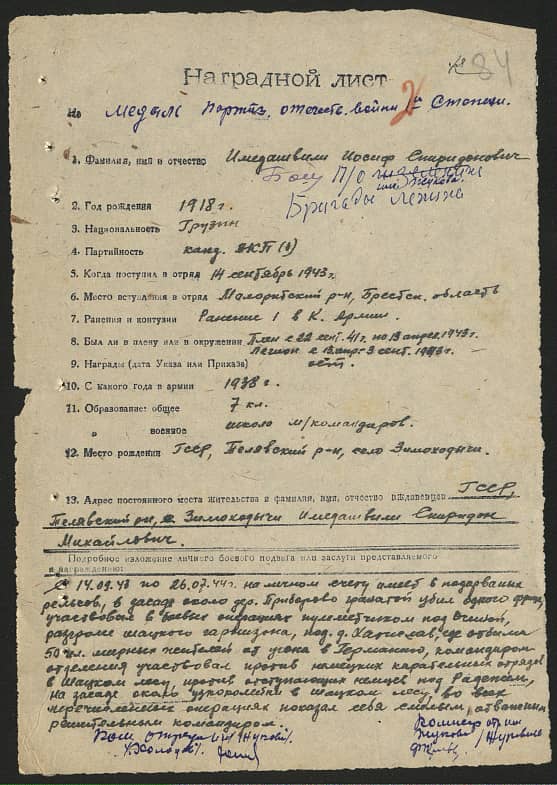 № 84
Наградной лист
На медаль Партиз. отечеств. войны 2й Степени.
1. Фамилия, имя и отчество Имедашвили Иосиф Спиридонович
Боец П/О им. Жукова
Бригады Ленина
2. Год рождения 1918 г.
3. Национальность Грузин
4. Партийность канд. ВКП(б)
5. Когда поступил в отряд 14 сентябрь 1943 г.
6. Место вступления в отряд Малоритский р-н, Брестск. область
7. Ранения и контузии Ранение 1 в К. Армии.
8. Был ли в плену или в окружении Плен с 22 сент. 41 г. по 13 апрел. 1943 г.
Легион с 13 апр. 3 сент. 1943 г.
9. Награды (дата Указа или Приказа)
10. С какого года в армии 1938 г.
11. Образование: общее 7 кл.
военное школа м/командиров.
12. Место рождения ГССР, Телавский р-н, село Зимоходычи.
13. Адрес постоянного места жительства и фамилия, имя, отчество иждивенцев ГССР,
Телавский р-н, с. Зимоходычи Имедашвили Спиридон
Михайлович.
Подробное изложение личного боевого подвига или заслуги представляемого
к награждению:
С 14.09.43 по 26.07.44 г. на личном счету имеет 6 подорванных
рельсов, в засаде около дер. Приборово гранатой убил одного фрица,
участвовал в боевых операциях пулеметчиком под
разгроме шацкого гарнизона, под д. Хатислав, где отбили
50 чл. мирных жителей от угона в Германию, командиром
отделения участвовал против немецких карательных отрядов
в шацком лесу, против отступающих немцев под
на засаде около узкоколейки в шацком лесу, во всех
перечисленных операциях показал себя смелым, отважным
решительным командиром.
Ком. отряда им. Жукова
Комиссар отр. им.
Жукова